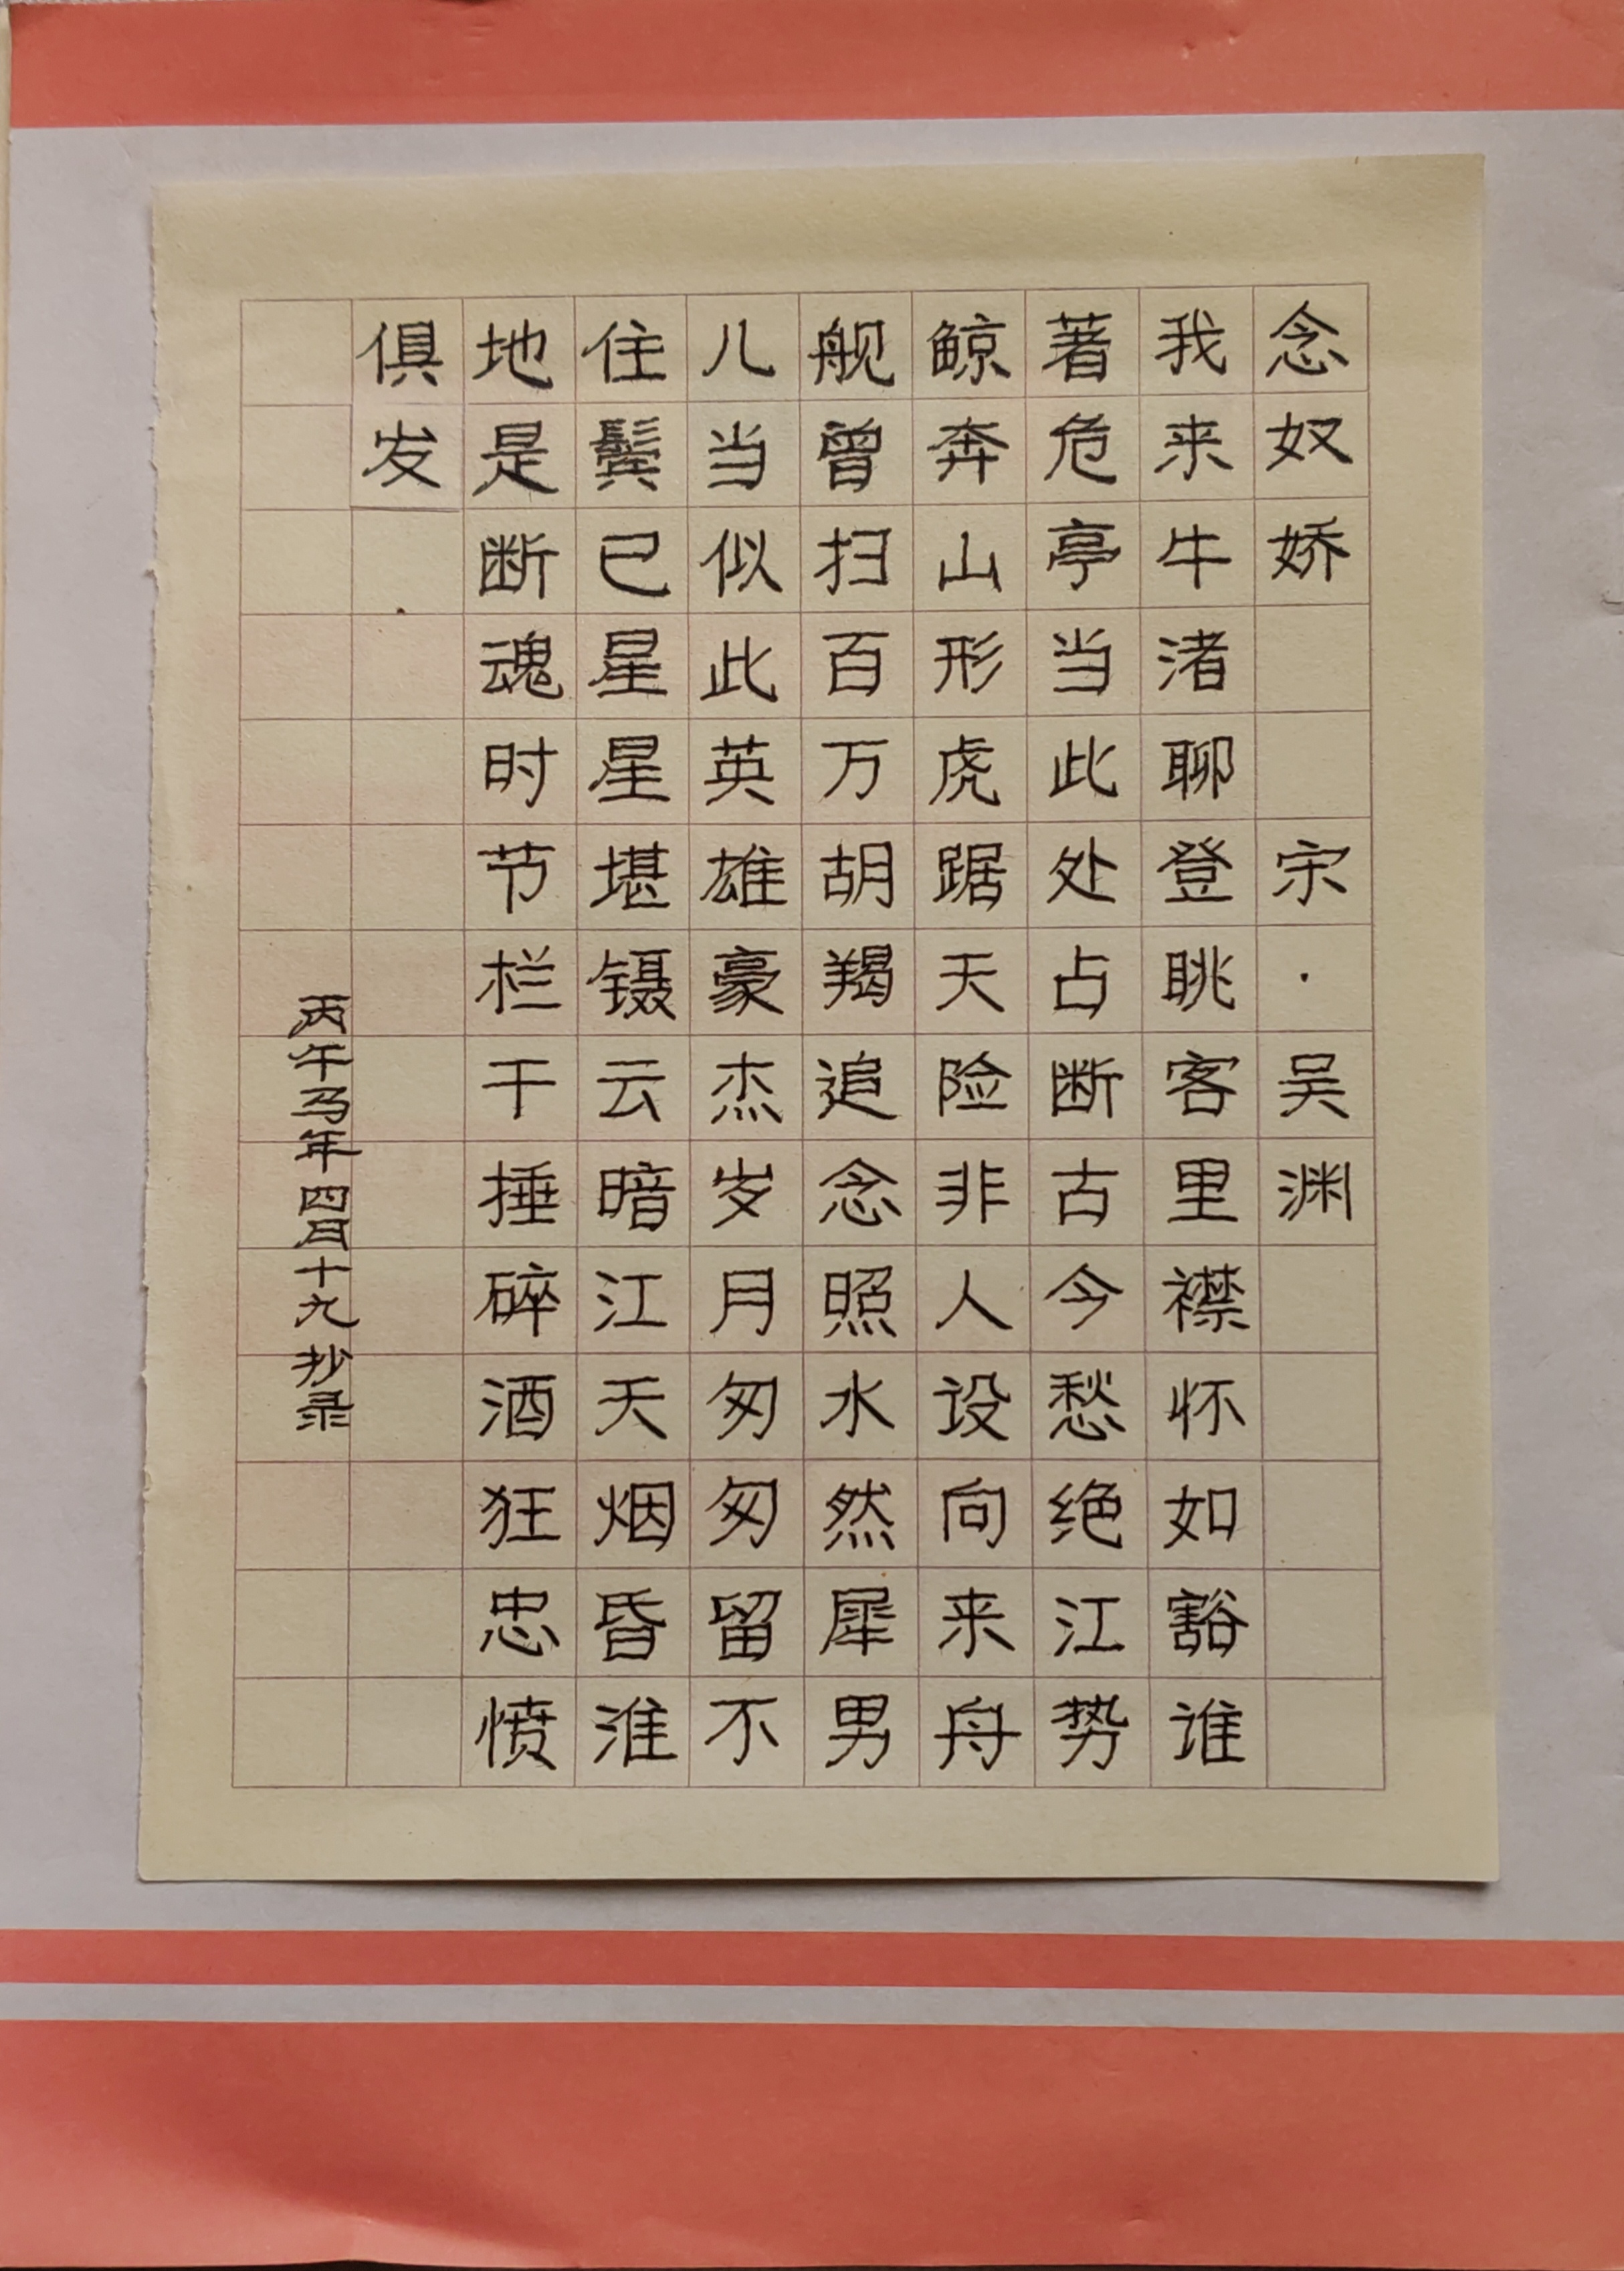 念奴娇 宋·吴渊
我来牛渚聊登眺客里襟怀如豁谁
著危亭当此处占断古今愁绝江势
鲸奔山形虎踞天险非人设向来舟
舰曾扫百万胡羯追念照水然犀男
儿当似此英雄豪杰岁月匆匆留不
住鬓已星星堪镊云暗江天烟昏淮
地是断魂时节栏干捶碎酒狂忠愤
俱发
丙午马年四月十九抄录